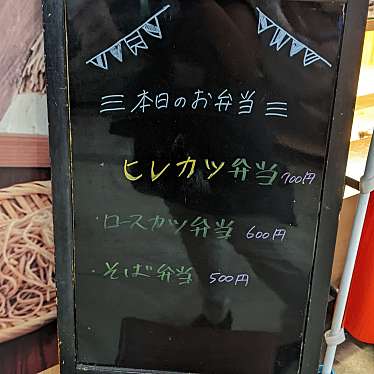 本日のお弁当
ヒレカツ弁当 700円
・ロースカツ弁当 600円
・そば弁当 500円